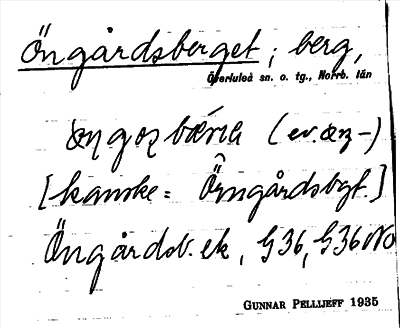 Öngårdsberget; berg,
Överluleå sn. o. tg., Norrb. län
(ev. æŋ-)
[kanske = Örngårdsbgt.]
Öngårdsb. ek, G36, G36 No
GUNNAR PELLIJEFF 1935